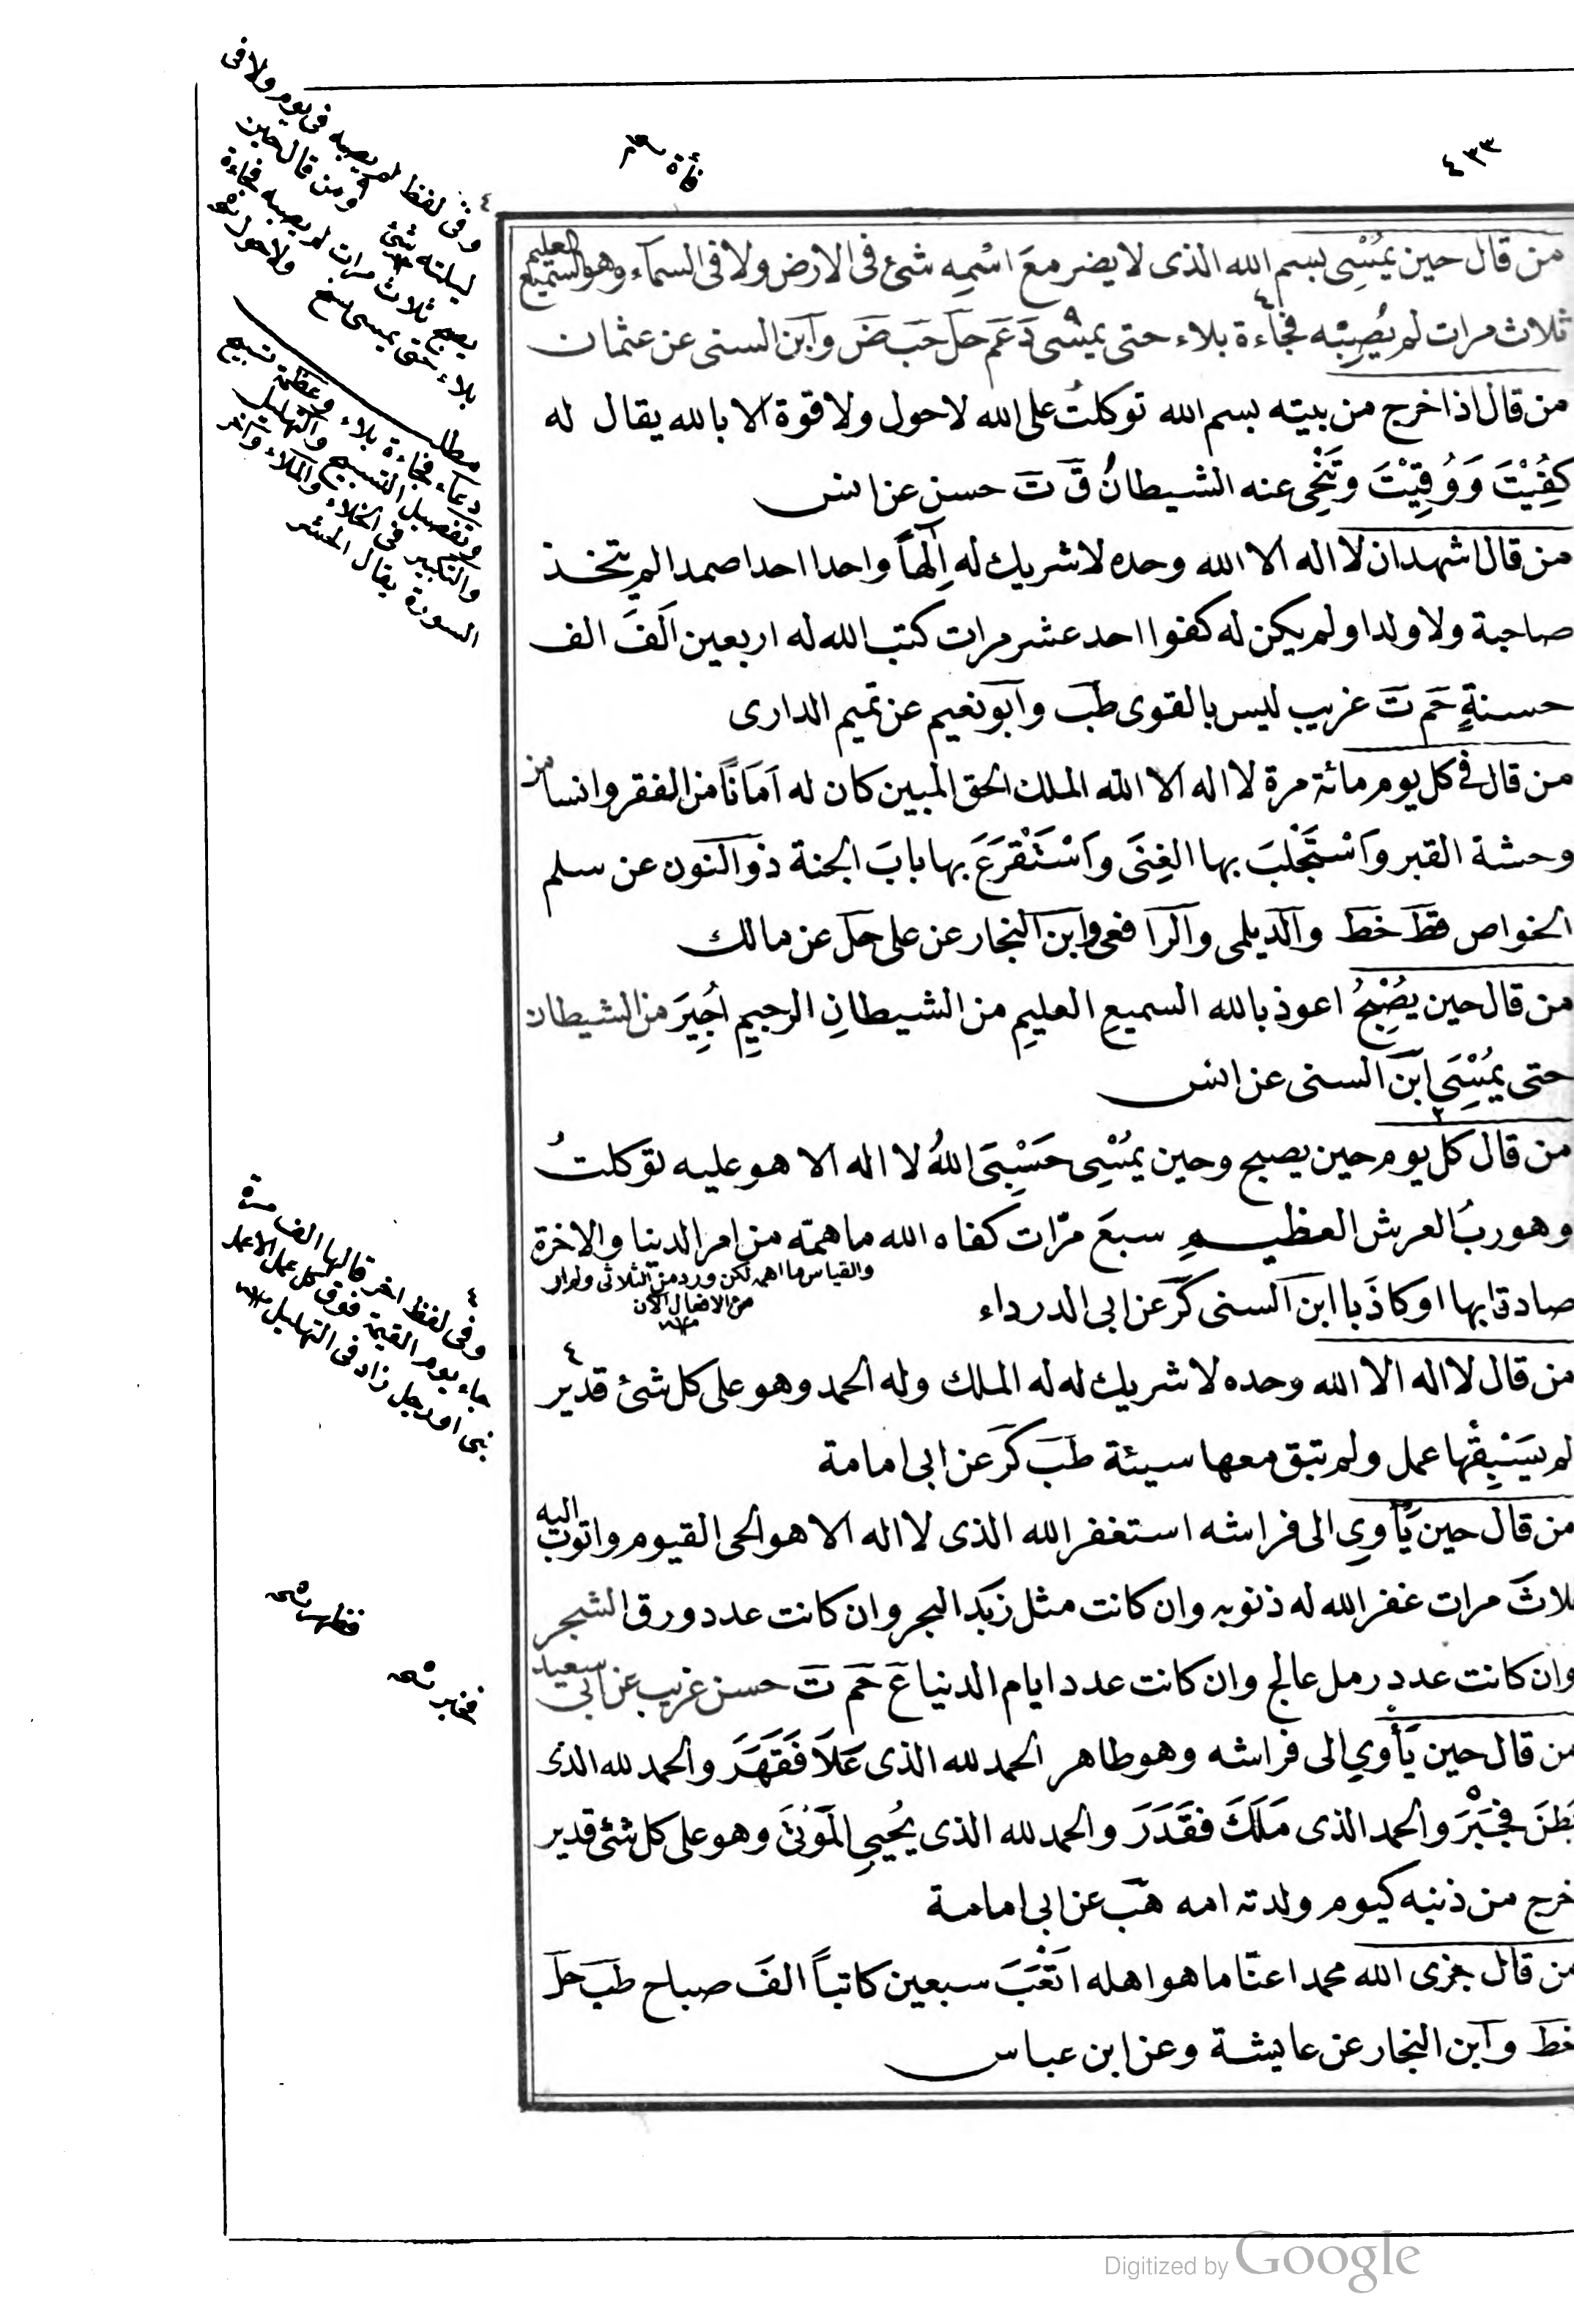 ٤٣٣
فأة نسخه
من قال حين يُمْسِى بسم الله الذى لا يضر معَ اسْمِه شئ فى الارض ولا فى السمآء وهو السميع العليم
ثلاث مرات لم يُصِبْه فجاءة بلاء حتى يمسى دَ عَم حلَ حَب ضَ وآبن السنى عن عثمان
من قال اذا خرج من بيته بسم الله توكلتُ على الله لا حول ولا قوة الا بالله يقال له
كُفِيْتَ وَوُقِيْتَ وتَنَحّٰى عنه الشيطانُ قَ تَ حسن عن انس
من قال اشهد ان لا اله الا الله وحده لا شريك له اِلٰهاً واحدا احدا صمدا لم يتخذ
صاحبة ولا ولدا ولم يكن له كفوا احد عشر مرات كتب الله له اربعين اَلفَ الف
حسنةٍ حَم تَ غريب ليس بالقوى طبَ وآبو نعيم عن تميم الدارى
من قال فى كل يوم مائة مرة لا اله الا الله الملك الحق المبين كان له اَمَانًا من الفقر وانسا من
وحشة القبر وَاسْتَجْلَبَ بها الغِنَى وَاسْتَقْرَعَ بها بابَ الجنة ذو النون عن سلم
الخواص قطَ خطَ والديلمى والرافعى وابن النجار عن على حلَ عن مالك
من قال حين يُصْبِحُ اعوذ بالله السميعِ العليمِ من الشيطانِ الرجيمِ اُجِيرَ من الشيطان
حتى يُمْسِىَ ابن السنى عن انس
من قال كل يوم حين يصبح وحين يُمْسِى حَسْبِىَ اللهُ لا اله الا هو عليه توكلتُ
وهو ربُ العرش العظيم سبعَ مرّات كفاه الله ما همّه من امر الدنيا والاخرة
والقياس ما اهمه لكن ورد من الثلاثى
من الافعال الآن
صادقا بها او كاذبا ابن السنى كرَ عن ابى الدرداء
من قال لا اله الا الله وحده لا شريك له له الملك وله الحمد وهو على كل شئ قدير ٤
لم يَسْبِقْها عمل ولم تبق معها سيئة طبَ كرَ عن ابى امامة
من قال حين يَأْوِى الى فراشه استغفر الله الذى لا اله الا هو الحى القيوم واتوب اليه
ثلاثَ مرات غفر الله له ذنوبه وان كانت مثل زبَد البحر وان كانت عدد ورق الشجر
وان كانت عدد رمل عالج وان كانت عدد ايام الدنيا عَ حَم تَ حسن غريب عن ابى سعيد
من قال حين يَأْوِى الى فراشه وهو طاهر الحمد لله الذى عَلَا فَقَهَرَ والحمد لله الذى
بَطَنَ فَخَبَرَ والحمد الذى مَلَكَ فقَدَرَ والحمد لله الذى يُحْيِى المَوْتٰى وهو على كل شئ قدير
خرج من ذنبه كيوم ولدته امه هبَ عن ابى امامة
من قال جزى الله محمدا عنّا ما هو اهله اتْعَبَ سبعين كاتباً الفَ صباح طبَ حلَ
خطَ وآبن النجار عن عايشة وعن ابن عباس
٤ وفى لفظ لم يصبه فى يوم ولا فى
ليلته شئ ومن قال حين
يصبح ثلاث مرات لم يصبه فجاءة
بلاء حتى يمسى
مطلب
دعآء فجاءة بلاء وعظمة تسبيح
وتفصيل التسبيح والتهليل
والتكبير فى الخلاء والملاء وآخر
السورة يقال الحشر
٤ وفى لفظ اخر قالها الف مرة
جاء يوم القيمة فوق كل عمل الا عمل
نبى او رجل زاد فى التهليل
فظهر نسخه
فخبر نسخه
Digitized by Google